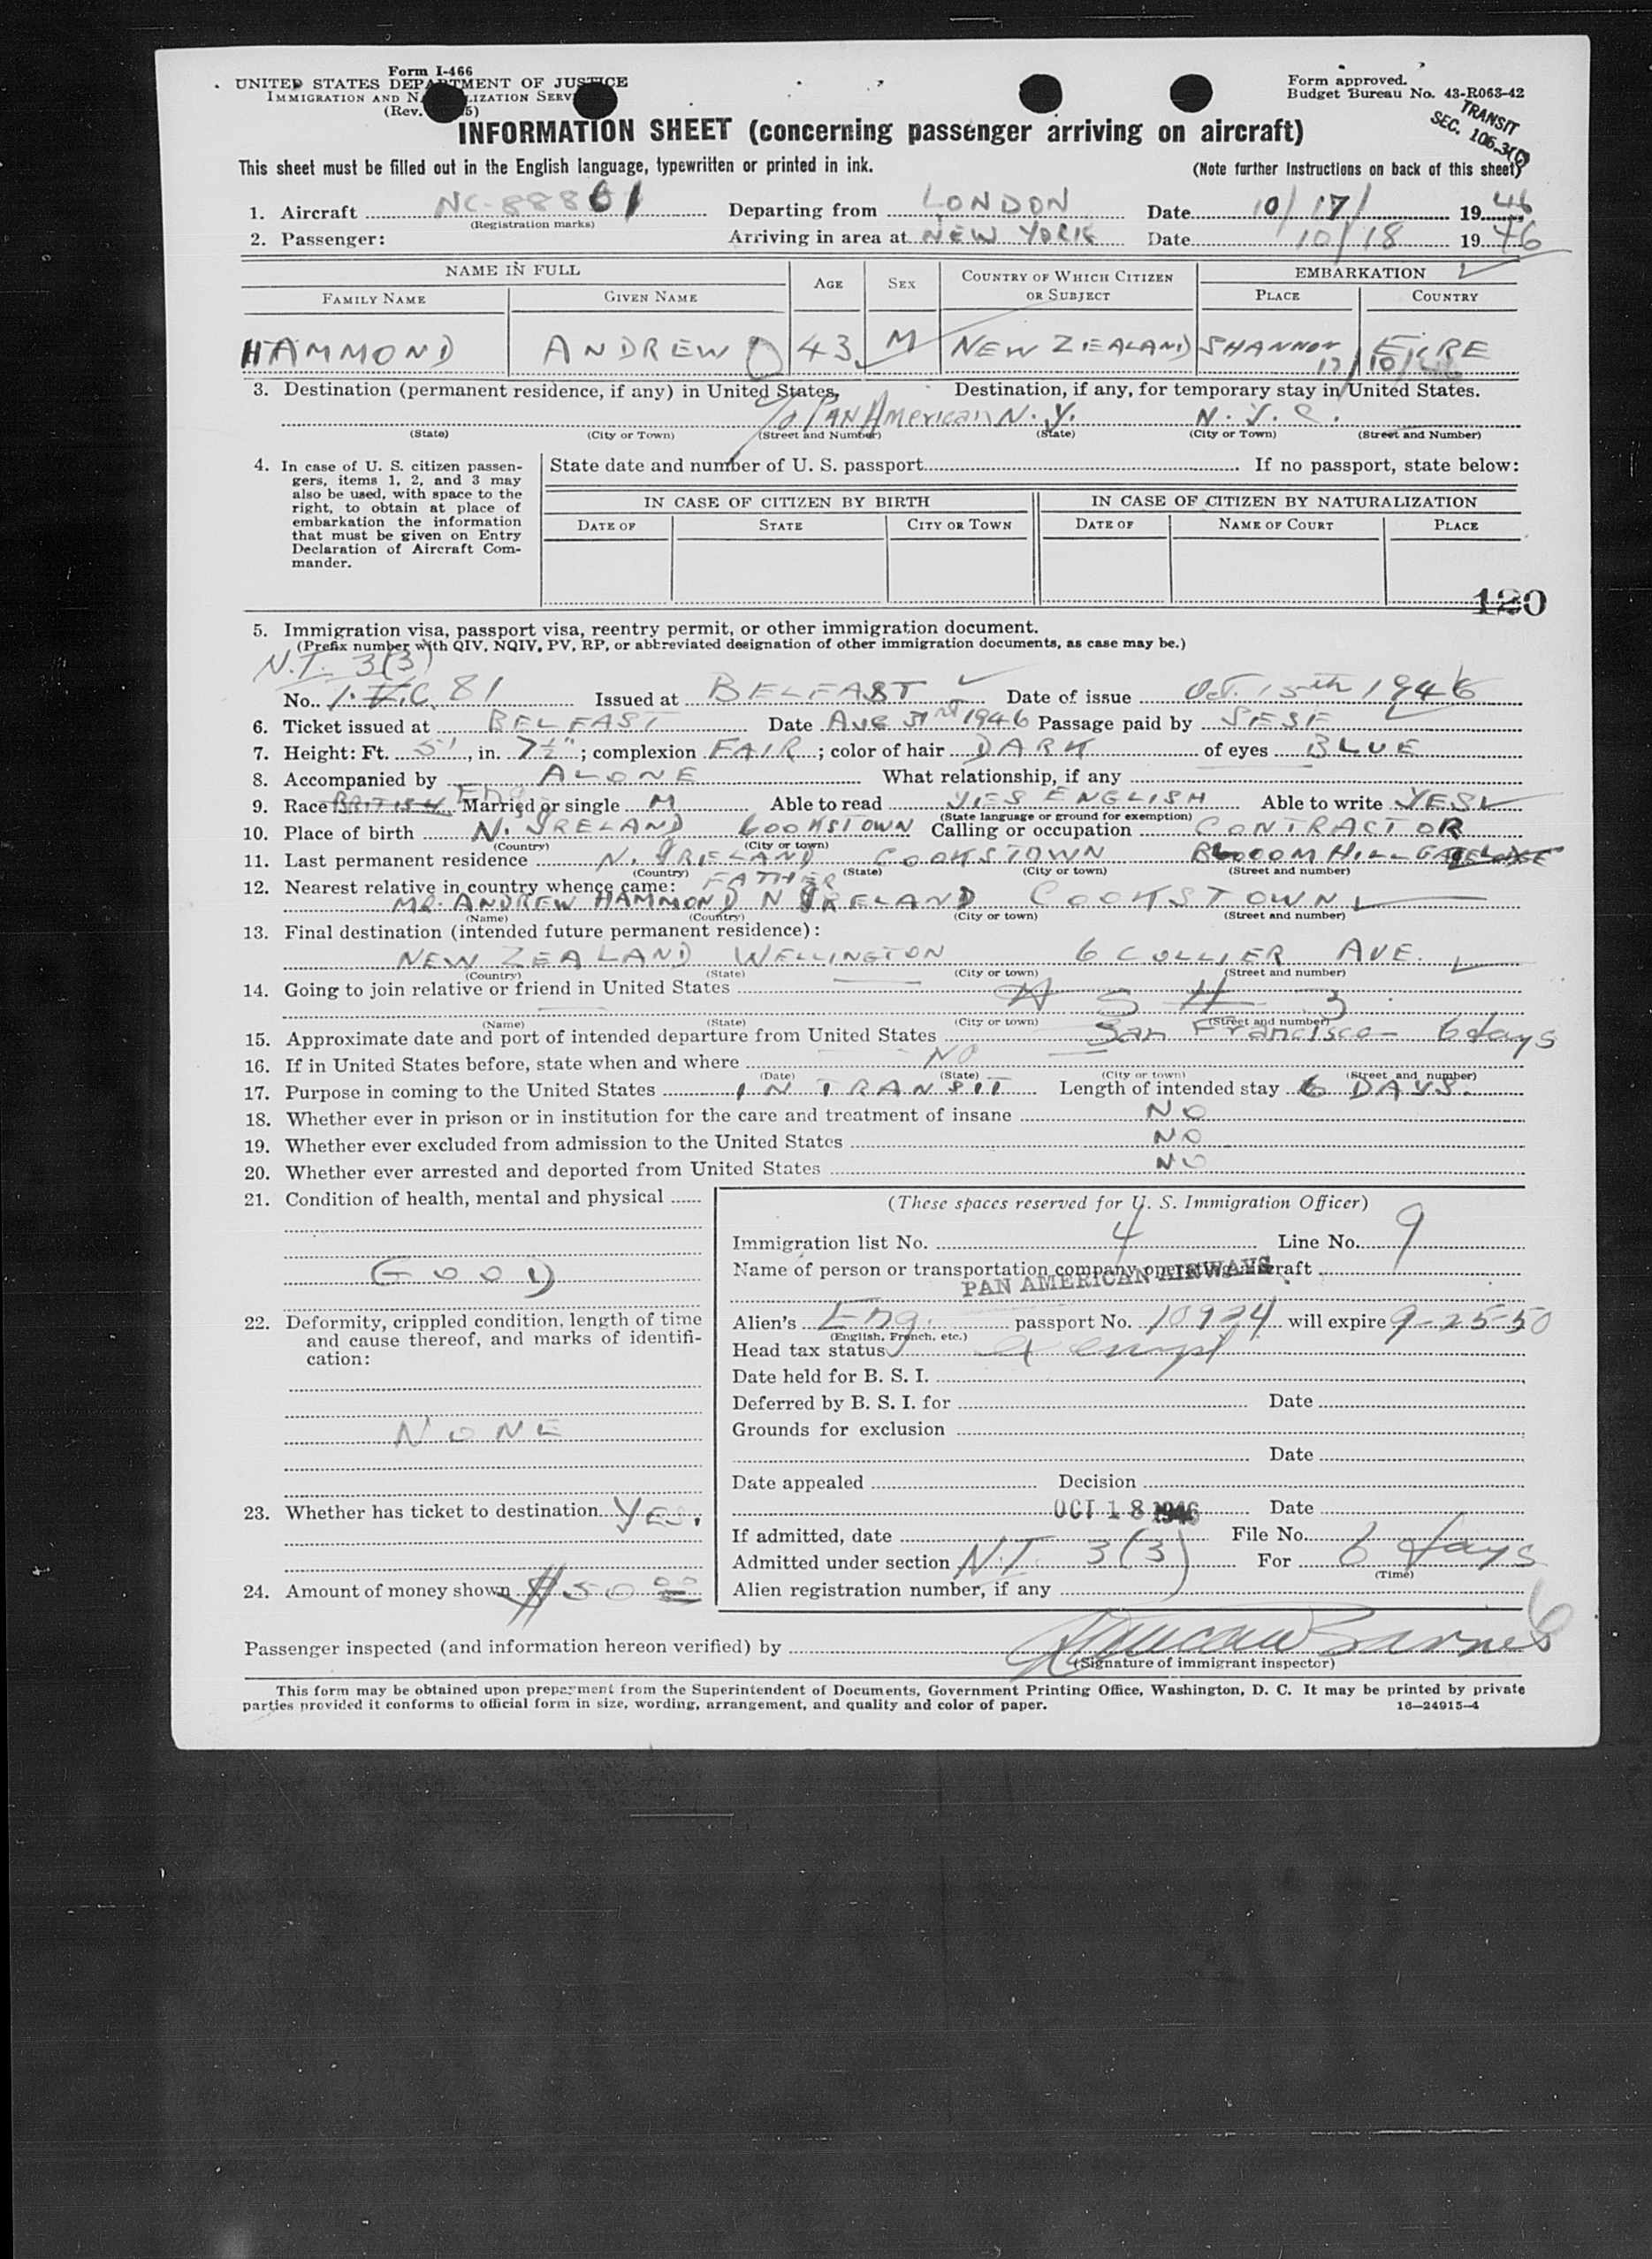 Form I-466
UNITED STATES DEPARTMENT OF JUSTICE
IMMIGRATION AND NATURALIZATION SERVICE
(Rev. 5)
Form approved.
Budget Bureau No. 43-R063-42
TRANSIT
SEC. 106.3(C)
INFORMATION SHEET (concerning passenger arriving on aircraft)
This sheet must be filled out in the English language, typewritten or printed in ink. (Note further Instructions on back of this sheet)
1. Aircraft NC-88861 Departing from LONDON Date 10/17/ 1946
(Registration marks)
2. Passenger: Arriving in area at NEW YORK Date 10/18 1946
NAME IN FULL AGE SEX COUNTRY OF WHICH CITIZEN OR SUBJECT EMBARKATION
FAMILY NAME GIVEN NAME PLACE COUNTRY
HAMMOND ANDREW 43 M NEW ZEALAND SHANNON EIRE
17/10/46
3. Destination (permanent residence, if any) in United States. Destination, if any, for temporary stay in United States.
c/o Pan American N.Y. N.Y.C.
(State) (City or Town) (Street and Number) (State) (City or Town) (Street and Number)
4. In case of U. S. citizen passengers, items 1, 2, and 3 may also be used, with space to the right, to obtain at place of embarkation the information that must be given on Entry Declaration of Aircraft Commander.
State date and number of U. S. passport If no passport, state below:
IN CASE OF CITIZEN BY BIRTH IN CASE OF CITIZEN BY NATURALIZATION
DATE OF STATE CITY OR TOWN DATE OF NAME OF COURT PLACE
120
5. Immigration visa, passport visa, reentry permit, or other immigration document.
(Prefix number with QIV, NQIV, PV, RP, or abbreviated designation of other immigration documents, as case may be.)
N.I. 3(3)
No. 81 Issued at BELFAST Date of issue Oct. 15th 1946
6. Ticket issued at BELFAST Date AUG 31st 1946 Passage paid by SELF
7. Height: Ft. 5', in. 7½"; complexion FAIR; color of hair DARK of eyes BLUE
8. Accompanied by ALONE What relationship, if any
9. Race BRITISH Eng Married or single M Able to read YES ENGLISH Able to write YES
(State language or ground for exemption)
10. Place of birth N. IRELAND COOKSTOWN Calling or occupation CONTRACTOR
(Country) (City or town)
11. Last permanent residence N. IRELAND COOKSTOWN BLOOMHILL
(Country) (State) (City or town) (Street and number)
12. Nearest relative in country whence came: FATHER
MR. ANDREW HAMMOND N IRELAND COOKSTOWN
(Name) (Country) (City or town) (Street and number)
13. Final destination (intended future permanent residence):
NEW ZEALAND WELLINGTON 6 COLLIER AVE.
(Country) (State) (City or town) (Street and number)
14. Going to join relative or friend in United States
(Name) (State) (City or town) (Street and number)
15. Approximate date and port of intended departure from United States San Francisco - 6 days
16. If in United States before, state when and where NO
(Date) (State) (City or town) (Street and number)
17. Purpose in coming to the United States IN TRANSIT Length of intended stay 6 DAYS.
18. Whether ever in prison or in institution for the care and treatment of insane NO
19. Whether ever excluded from admission to the United States NO
20. Whether ever arrested and deported from United States NO
21. Condition of health, mental and physical
GOOD
22. Deformity, crippled condition, length of time and cause thereof, and marks of identification:
NONE
23. Whether has ticket to destination YES.
24. Amount of money shown $50.00
(These spaces reserved for U. S. Immigration Officer)
Immigration list No. 4 Line No. 9
Name of person or transportation company operating aircraft
PAN AMERICAN AIRWAYS
Alien's Eng. passport No. 10924 will expire 9-25-50
(English, French, etc.)
Head tax status exempt
Date held for B. S. I.
Deferred by B. S. I. for Date
Grounds for exclusion
Date
Date appealed Decision
OCT 18 1946 Date
If admitted, date File No.
Admitted under section N.I. 3(3) For 6 days
(Time)
Alien registration number, if any
6
Passenger inspected (and information hereon verified) by Duncan Barnes
(Signature of immigrant inspector)
This form may be obtained upon prepayment from the Superintendent of Documents, Government Printing Office, Washington, D. C. It may be printed by private
parties provided it conforms to official form in size, wording, arrangement, and quality and color of paper. 16—24915-4